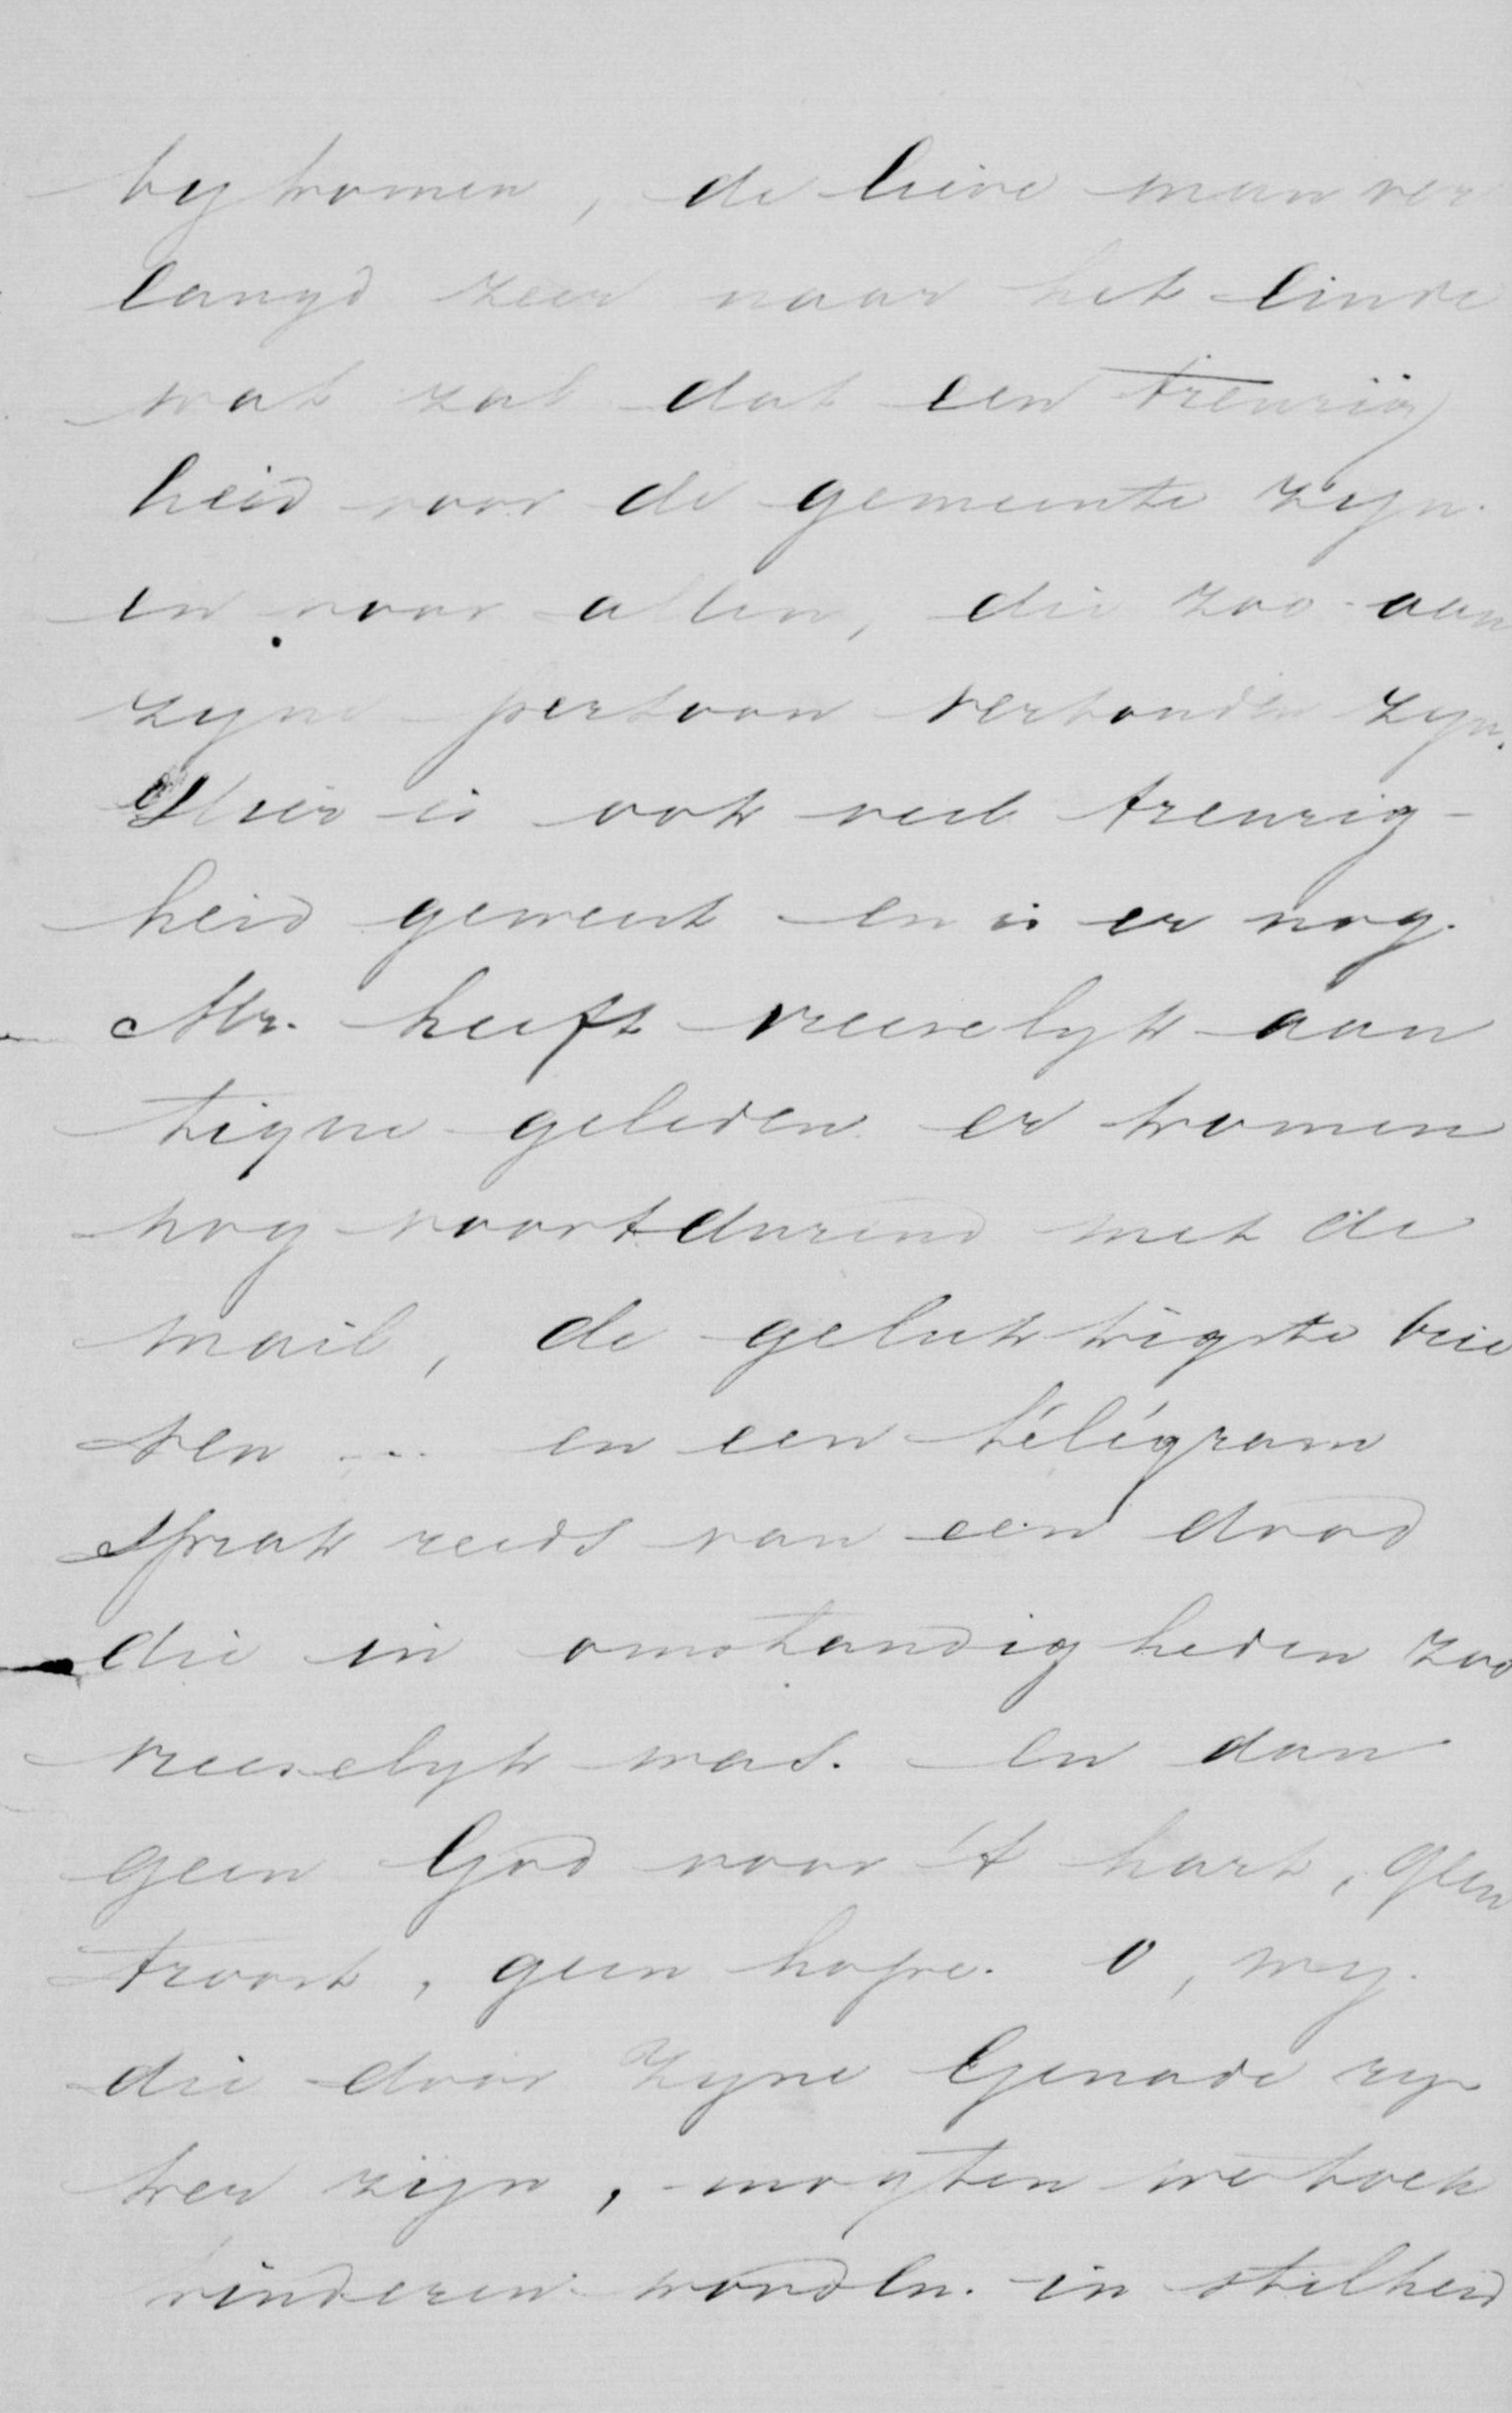 by komen, de lieve man ver
langd zeer naar het einde
wat zal dat een treurig
heid voor de gemeente zyn.
en voor allen, die zoo aan
zyne persoon verbonden zyn.
Hier is ook veel treurig-
heid geweest en is er nog.
Mr. heeft vreeselyk aan
geleden er komen
nog voortdurend met de
mail, de gelukkigste brie
ven ... en een télégram
sprak reeds van een dood
die in omstandigheden zoo
vreeselyk was. en dan
geen God voor 't hart, geen
troost, geen hope. O, wy
die door Zyne Genade ry
ker zijn, mogten we toch
kinderen worden. in stilheid